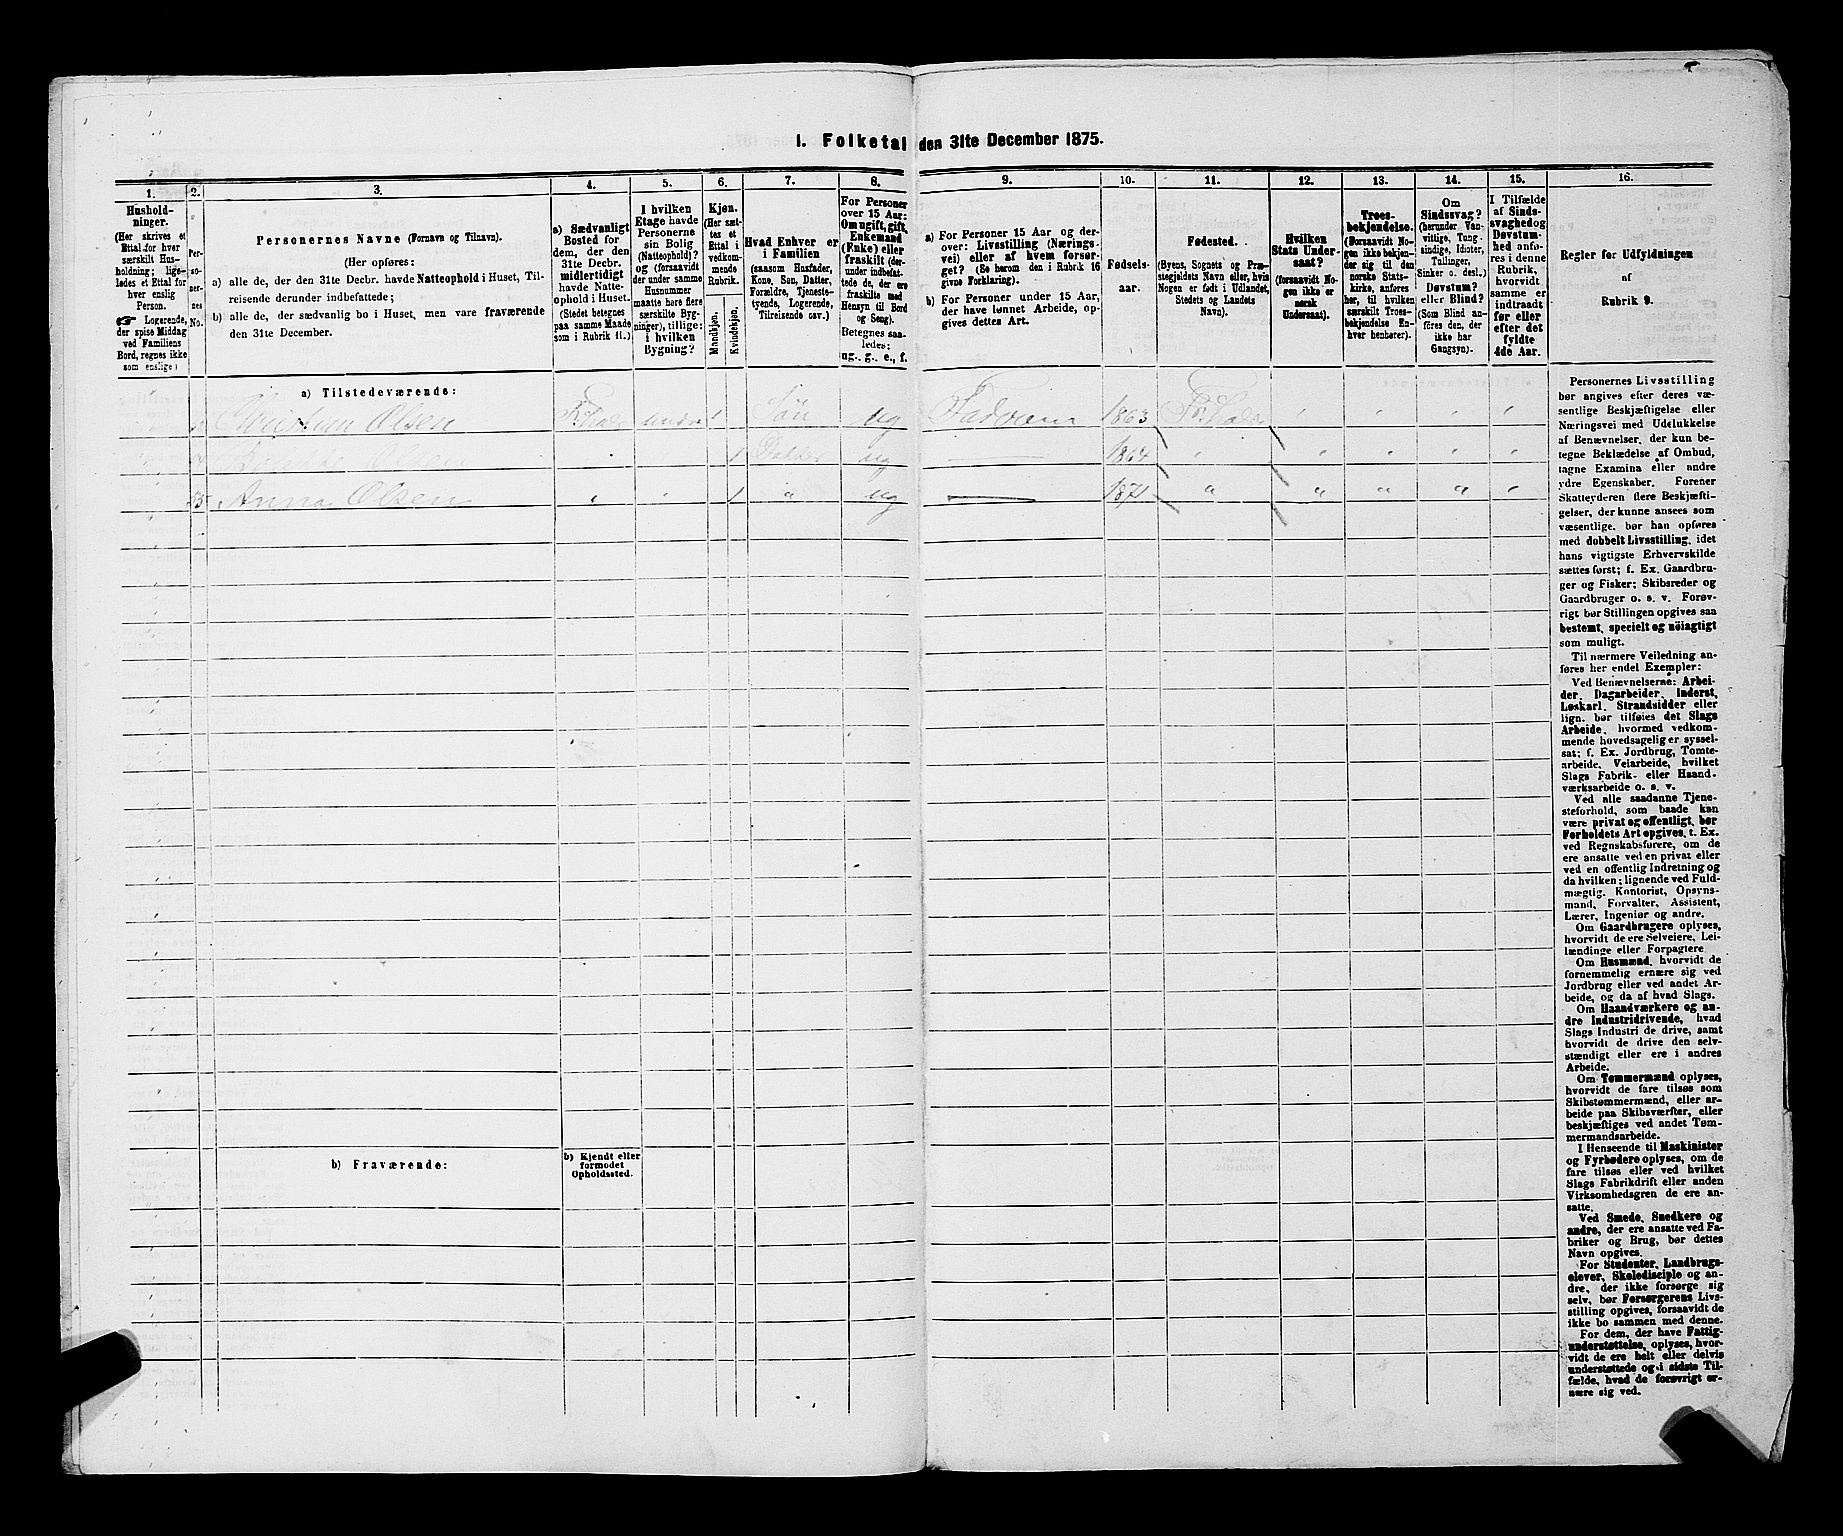 1. Folketal den 31te December 1875.
1.
2.
3.
4.
5.
6.
7.
8.
9.
10.
11.
12.
13.
14.
15.
16.
Hushold-
ninger.
(Her skrives et
Ettal for hver
særskilt Hus-
holdning; lige-
ledes et Ettal for
hver enslig
Person.
☞ Logerende,
der spise Middag
ved Familiens
Bord, regnes ikke
som enslige)
Per-
so-
ner-
nes
No.
Personernes Navne (Fornavn og Tilnavn).
(Her opføres:
a) alle de, der den 31te Decbr. havde Natteophold i Huset, Til-
reisende derunder indbefattede;
b) alle de, der sædvanlig bo i Huset, men vare fraværende
den 31te December.
a) Sædvanligt
Bosted for
dem, der den
31te Decbr.
midlertidigt
havde Natte-
ophold i Huset.
(Stedet betegnes
paa samme Maade
som i Rubrik 11.)
I hvilken
Etage havde
Personerne
sin Bolig
(Natteophold)?
og (forsaavidt
der under samme
Husnummer
maatte høre flere
særskilte Byg-
ninger), tillige:
i hvilken
Bygning?
Kjøn.
(Her sæt-
tes et
Ettal i
vedkom-
mende
Rubrik.
Mandkjøn.
Kvindekjøn.
Hvad Enhver er
i Familien
(saasom Husfader,
Kone, Søn, Datter,
Forældre, Tjeneste-
tyende, Logerende,
Tilreisende osv.)
For Personer
over 15 Aar:
Om ugift, gift,
Enkemand
(Enke) eller
fraskilt (der-
under indbefat-
tede de, der ere
fraskilte med
Hensyn til Bord
og Seng).
Betegnes saa-
ledes:
ug., g., e., f.
a) For Personer 15 Aar og der-
over: Livsstilling (Nærings-
vei) eller af hvem forsør-
get? (Se herom den i Rubrik 16
givne Forklaring).
b) For Personer under 15 Aar,
der have lønnet Arbeide, op-
gives dettes Art.
Fødsels-
aar.
Fødested.
(Byens, Sognets og Præ-
stegjeldets Navn eller, hvis
Nogen er født i Udlandet,
Stedets og Landets
Navn).
Hvilken
Stats Under-
saat?
(forsaavidt No-
gen ikke er
norsk
Undersaat).
Troes-
bekjendelse.
(Forsaavidt No-
gen ikke bekjen-
der sig til den
norske Stats-
kirke, anføres
her, til hvilken
særskilt Troes-
bekjendelse En-
hver henhører).
Om
Sindssvag?
(herunder Van-
vittige, Tung-
sindige, Idioter,
Tullinger,
Sinker o. desl.)
Døvstum?
eller Blind?
(Som Blind an-
føres den, der
ikke har
Gangsyn).
I Tilfælde
af Sinds-
svaghed og
Døvstum-
hed anfø-
res i denne
Rubrik,
hvorvidt
samme er
indtraadt
før eller
efter det
fyldte
4de Aar.
Regler for Udfyldningen
af
Rubrik 9.
a) Tilstedeværende:
Christian Olsen 1 Søn ug 1863
Olsen 1 Datter ug 1864 "
Anna Olsen " " 1 " ug 1871 " " " " "
b) Fraværende:
b) Kjendt eller
formodet
Opholdssted.
Personernes Livsstilling
bør angives efter deres væ-
sentlige Beskjæftigelse eller
Næringsvei med Udelukkelse
af Benævnelser, der kun be-
tegne Beklædelse af Ombud,
tagne Examina eller andre
ydre Egenskaber. Forener
Skatteyderen flere Beskjæfti-
gelser, der kunne ansees som
væsentlige, bør han opføres
med dobbelt Livsstilling, idet
hans vigtigste Erhvervskilde
sættes først; f. Ex. Gaardbru-
ger og Fisker; Skibsreder og
Gaardbruger o. s. v. Forøv-
rigt bør Stillingen opgives saa
bestemt, specielt og nöiagtigt
som muligt.
Til nærmere Veiledning an-
føres her endel Exempler:
Ved Benævnelserne: Arbei-
der, Dagarbeider, Inderst,
Løskarl, Strandsidder eller
lign. bør tilføies det Slags
Arbeide, hvormed vedkom-
mende hovedsagelig er syssel-
sat; f. Ex. Jordbrug, Tomte-
arbeide, Veiarbeide, hvilket
Slags Fabrik- eller Haand-
værksarbeide o. s. v.
Ved alle saadanne Tjene-
steforhold, som baade kan
være privat og offentligt, bør
Forholdets Art opgives, t. Ex.
ved Regnskabsførere, om de
ere ansatte ved en privat eller
ved en offentlig Indretning og
da hvilken; lignende ved Fuld-
mægtig, Kontorist, Opsyns-
mand, Forvalter, Assistent,
Lærer, Ingeniør og andre.
Om Gaardbrugere oplyses,
hvorvidt de ere Selveiere, Lei-
lændinge eller Forpagtere.
Om Husmænd, hvorvidt de
fornemmelig ernære sig ved
Jordbrug eller ved andet Ar-
beide, og da af hvad Slags.
Om Haandværkere og an-
dre Industridrivende, hvad
Slags Industri de drive, samt
hvorvidt de drive den selv-
stændigt eller ere i andres
Arbeide.
Om Tømmermænd oplyses,
hvorvidt de fare tilsøs som
Skibstømmermænd, eller ar-
beide paa Skibsværfter, eller
beskjæftiges ved andet Tøm-
mermandsarbeide.
I Henseende til Maskinister
og Fyrbødere oplyses, om de
fare tilsøs eller ved hvilket
Slags Fabrikdrift eller anden
Virksomhedsgren de ere an-
satte.
Ved Smede, Snedkere og
andre, der ere ansatte ved Fa-
briker og Brug, bør dettes
Navn opgives.
For Studenter, Landbrugs-
elever, Skoledisciple og an-
dre, der ikke forsørge sig
selv, bør Forsørgerens Livs-
stilling opgives, forsaavidt de
ikke bo sammen med denne.
For dem, der have Fattig-
understøttelse, oplyses, hvor-
vidt de ere helt eller delvis
understøttede og i sidste Til-
fælde, hvad de forøvrigt er-
nære sig ved.